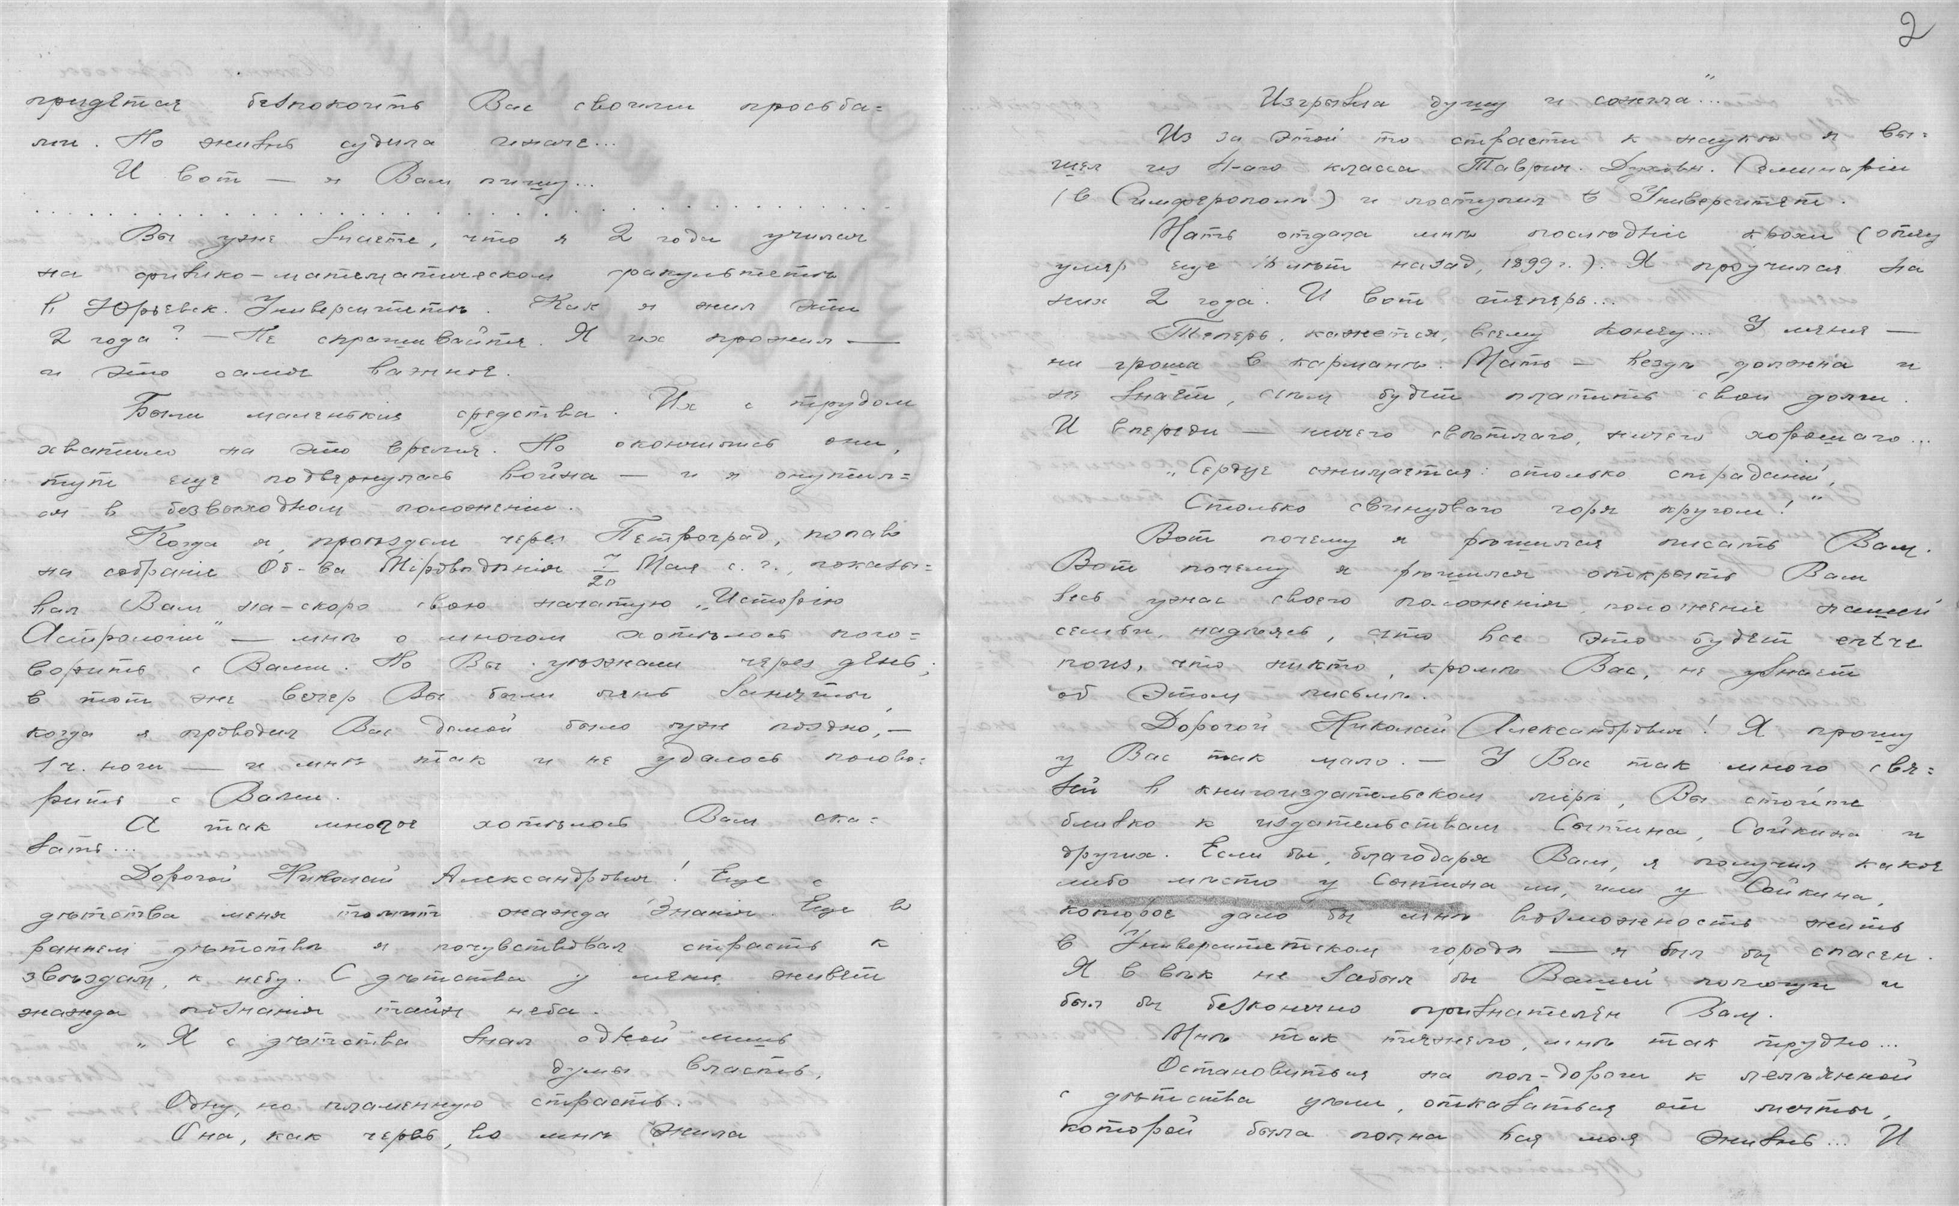 придётся безпокоить Вас своими просьба=
ми. Но жизнь судила иначе...
И вот — я Вам пишу...
Вы уже знаете, что я 2 года учился
на физико-математическом факультете
в Юрьевск. Университете. Как я жил эти
2 года? — Не спрашивайте. Я их прожил —
и это самое важное.
Были маленькия средства. Их с трудом
хватило на это время. Но окончились они,
тут еще подвернулась война — и я очутил=
ся в безвыходном положении.
Когда я, проездом через Петроград, попав
на собрание Об-ва Мироведения 7/20 Мая с. г., показы=
вал Вам на-скоро свою начатую „Историю
Астрологии" — мне о многом хотелось пого=
ворить с Вами. Но Вы уезжали через день;
в тот же вечер Вы были очень заняты,
когда я проводил Вас домой было уж поздно, —
1 ч. ночи — и мне так и не удалось погово=
рить с Вами.
А так многое хотелось Вам ска=
зать...
Дорогой Николай Александрович! Еще с
детства меня томит жажда знания. Еще в
раннем детстве я почувствовал страсть к
звездам, к небу. С детства у меня живет
жажда познания тайн неба.
„Я с детства знал одной лишь
думы власть,
Одну, но пламенную страсть.
Она, как червь, во мне жила
2
Изгрызла душу и сожгла"...
Из за этой то страсти к науке я вы=
шел из 4-аго класса Таврич. Духовн. Семинарии
(в Симферополе) и поступил в Университет.
Мать отдала мне последние крохи (отец
умер еще лет назад, 1899 г.). Я проучился на
них 2 года. И вот теперь...
Теперь, кажется, всему конец... У меня —
ни гроша в кармане. Мать — везде должна и
не знает, чем будет платить свои долги.
И впереди — ничего светлаго, ничего хорошаго...
„Сердце сжимается: столько страданий,
Столько свинцоваго горя кругом!"
Вот почему я решился писать Вам.
Вот почему я решился открыть Вам
весь ужас своего положения, положение нашей
семьи, надеясь, что все это будет entre
nous, что никто, кроме Вас, не узнает
об этом письме.
Дорогой Николай Александрович! Я прошу
у Вас так мало. — У Вас так много свя=
зей в книгоиздательском мире, Вы стоите
близко к издательствам Сытина, Сойкина и
других. Если бы, благодаря Вам, я получил какое
либо место у Сытина ли, или у Сойкина,
которое дало бы мне возможность жить
в Университетском городе — я был бы спасен.
Я в век не забыл бы Вашей помощи и
был бы безконечно признателен Вам.
Мне так тяжело, мне так трудно...
Остановиться на пол-дороги к лелеянной
с детства цели, отказаться от мечты,
которой была полна вся моя жизнь... И